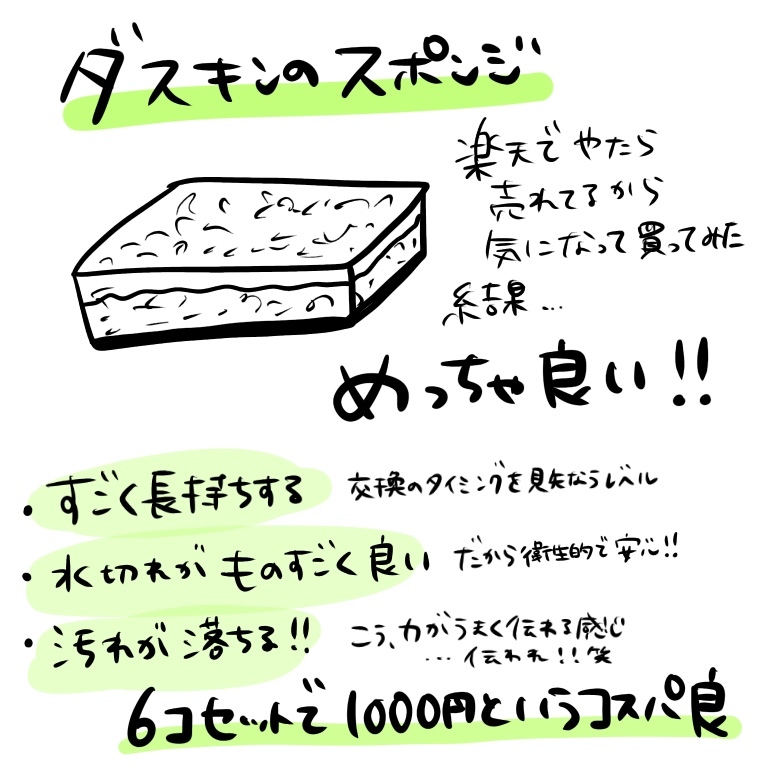 ダスキンのスポンジ
楽天でやたら
売れてるから
気になって買ってみた
結果…
めっちゃ良い!!
・すごく長持ちする 交換のタイミングを見失うレベル
・水切れがものすごく良い だから衛生的で安心!!
・汚れが落ちる!! こう、力がうまく伝わる感じ
…伝われ!!笑
6コセットで1000円というコスパ良